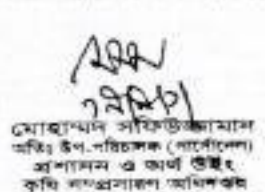 মোহাম্মদ সফিউজ্জামান
অতিঃ উপ-পরিচালক (পার্সোনেল)
প্রশাসন ও অর্থ উইং
কৃষি সম্প্রসারণ অধিদপ্তর